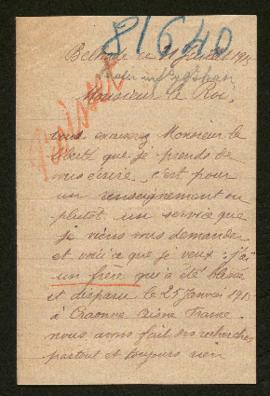 81640
ce 11 Juillet 1915
Monsieur Le Roi,
vous excuserez Monsieur la
liberté que je prends de
vous écrire, c'est pour
un renseignement ou
plutôt un service que
je viens vous demander
et voici ce que je veux : j'ai
un frère qui a été blessé
et disparu le 25 Janvier 1915
à Craonne Aisne France.
nous avons fait des recherches
partout et toujours rien